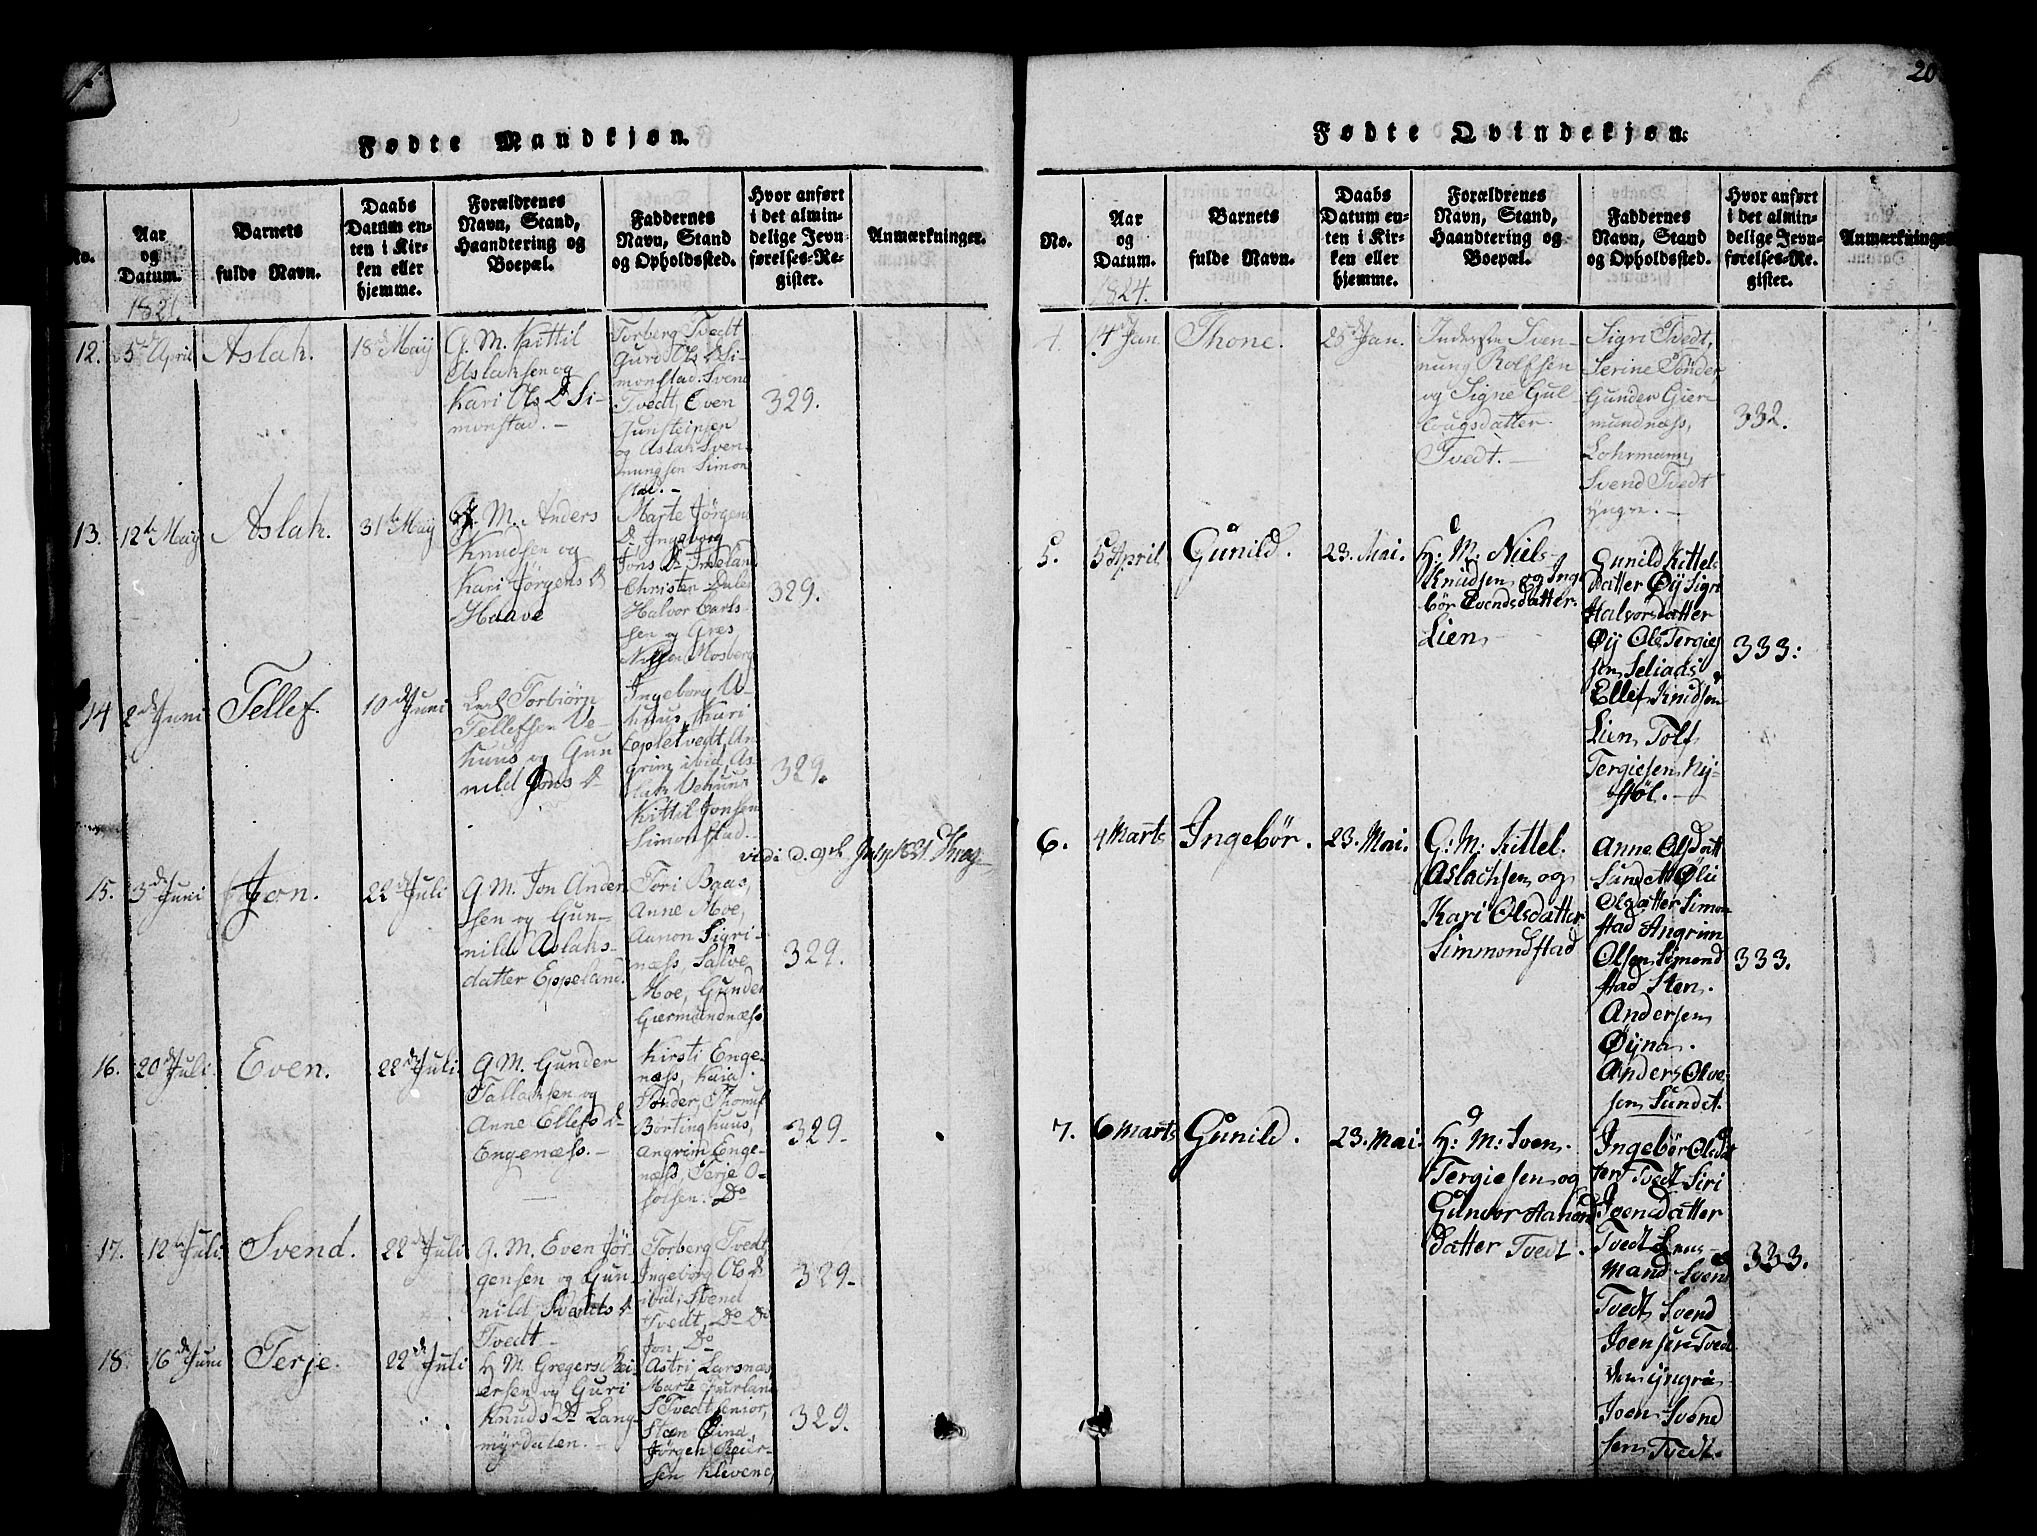 Fødte Mandkjøn.
No.
Aar
og
Datum.
1821.
Barnets
fulde Navn.
Daabs
Datum en-
ten i Kir-
ken eller
hjemme.
Forældrenes
Navn, Stand,
Haandtering og
Boepæl.
Faddernes
Navn, Stand
og Opholdssted.
Hvor anført
i det almin-
delige Jevn-
førelses-Re-
gister.
Anmærkninger.
12.
5te April
Aslak.
18de Maÿ
G. M. Kittil
Aslaksen og
Kari Ols D. Si-
monstad. –
Torberg Tvedt
Guri Ols D. Si-
monstad. Svend
Tvedt, Even
Junsteinsen
og Aslak Sven-
nungsen Simon
stad. –
329.
13.
12te Maÿ
Aslak.
31te Maÿ
G. M. Anders
Knudsen og
Kari Jørgens D.
Haave
Marte Jørgens
D. Ingebvig
Jons D. Imeland
Christen Dale
Halvor Carls-
sen og Gres
Nilsen Mosberg
329.
14
2de Juni
Tellef.
10de Juni
Torbiørn
Tellefsen Ve-
huus og Gun
nild Jons D.
Ingeborg V-
huus, Kari
Eppletvedt, An
grim ibid, As-
lak Vehuus
Kittil Jonsen
Simonstad.
329.
vidi d. 9de July 1821
15.
3de Juni
Jon.
22de Juli
G. M. Jon Ander
sen og Gun-
nild Aslaks-
datter Eppeland.
Tori Baas,
Anne Moe,
Aanon Sigri-
næss, Salve
Moe, Gunder
Giermundnæss
329.
16.
20de Juli
Even.
22de Juli.
G. M. Gunder
Tallaksen og
Anne Ellefs D.
Engenæss. –
Kirsti Enge-
næss, Kaia
Tønder, Thomas
Børtinghuus,
Angrim Enge-
næss, Terje O-
solsen. Do
329.
17.
12te Juli.
Svend.
22de Juli
G. M. Even Jør-
gensen og Gun
nild Svends D.
Tvedt
Torberg Tvedt
Ingeborg Ols D.
ibid, Svend
Tvedt, Do Do
Jon, Do
329.
18.
16de Juni
Terje.
22de Juli
H. M. Gregers Rei
ersen og Guri
Knuds D. Lang-
myrdalen. –
Astri Larsnæs,
Marte Fuurland
S Tvedt senior,
Steen Øind,
Jørgen Reier-
sen Klevene,
329.
20
Fødte Qvindekjøn.
No.
Aar
og
Datum.
1824.
Barnets
fulde Navn.
Daabs
Datum en-
ten i Kir-
ken eller
hjemme.
Forældrenes
Navn, Stand,
Haandtering og
Boepæl.
Faddernes
Navn, Stand
og Opholdssted.
Hvor anført
i det almin-
delige Jevn-
førelses-Re-
gister.
Anmærkninger
4.
14de Jan.
Thone.
25de Jan.
Inderste Sven-
nung Rolfsen
og Signe Gul
lougsdatter
Tvedt. –
Sigri Tvedt,
Serine Tønder
Gunder Gier-
mundnæss,
Lohrmann,
Svend Tvedt
yngre. –
332.
5.
5 April
Gunild.
23. Mai.
H: M: Niels
Knudsen og Inge
bør Evendsdatter.
Lien
Gunild Kittels
datter Øÿ Sigri
Halvorsdatter
Øÿ Ole Tergies
sen Seliaas
Ellef Knudsen
Lien Tolf
Tergiesen Nÿ-
støl. –
333:
6.
4 Marts
Ingebør.
23. Mai.
G: M: Kittel
Aslachsen og
Kari Olsdatter
Simmondstad
Anne Olsdatt
Sundet Øli
Olsdatter Simon
stad Angrim
Olsen Simond
stad Sten
Andersen
Øÿna.
Anders Olve
sen Sundet.
333.
7.
6 Marts
Gunild.
23. Mai.
H: M: Joen
Tergiesen og
Gunvor Aanond
datter Tvedt.
Ingebør Olsdat
Tvedt Siri
Joensdatter
Tvedt Lens-
mand Svend
Tvedt Svend
Joensen Tved
den ÿngre
Joen Svend
sen Tvedt.
333.